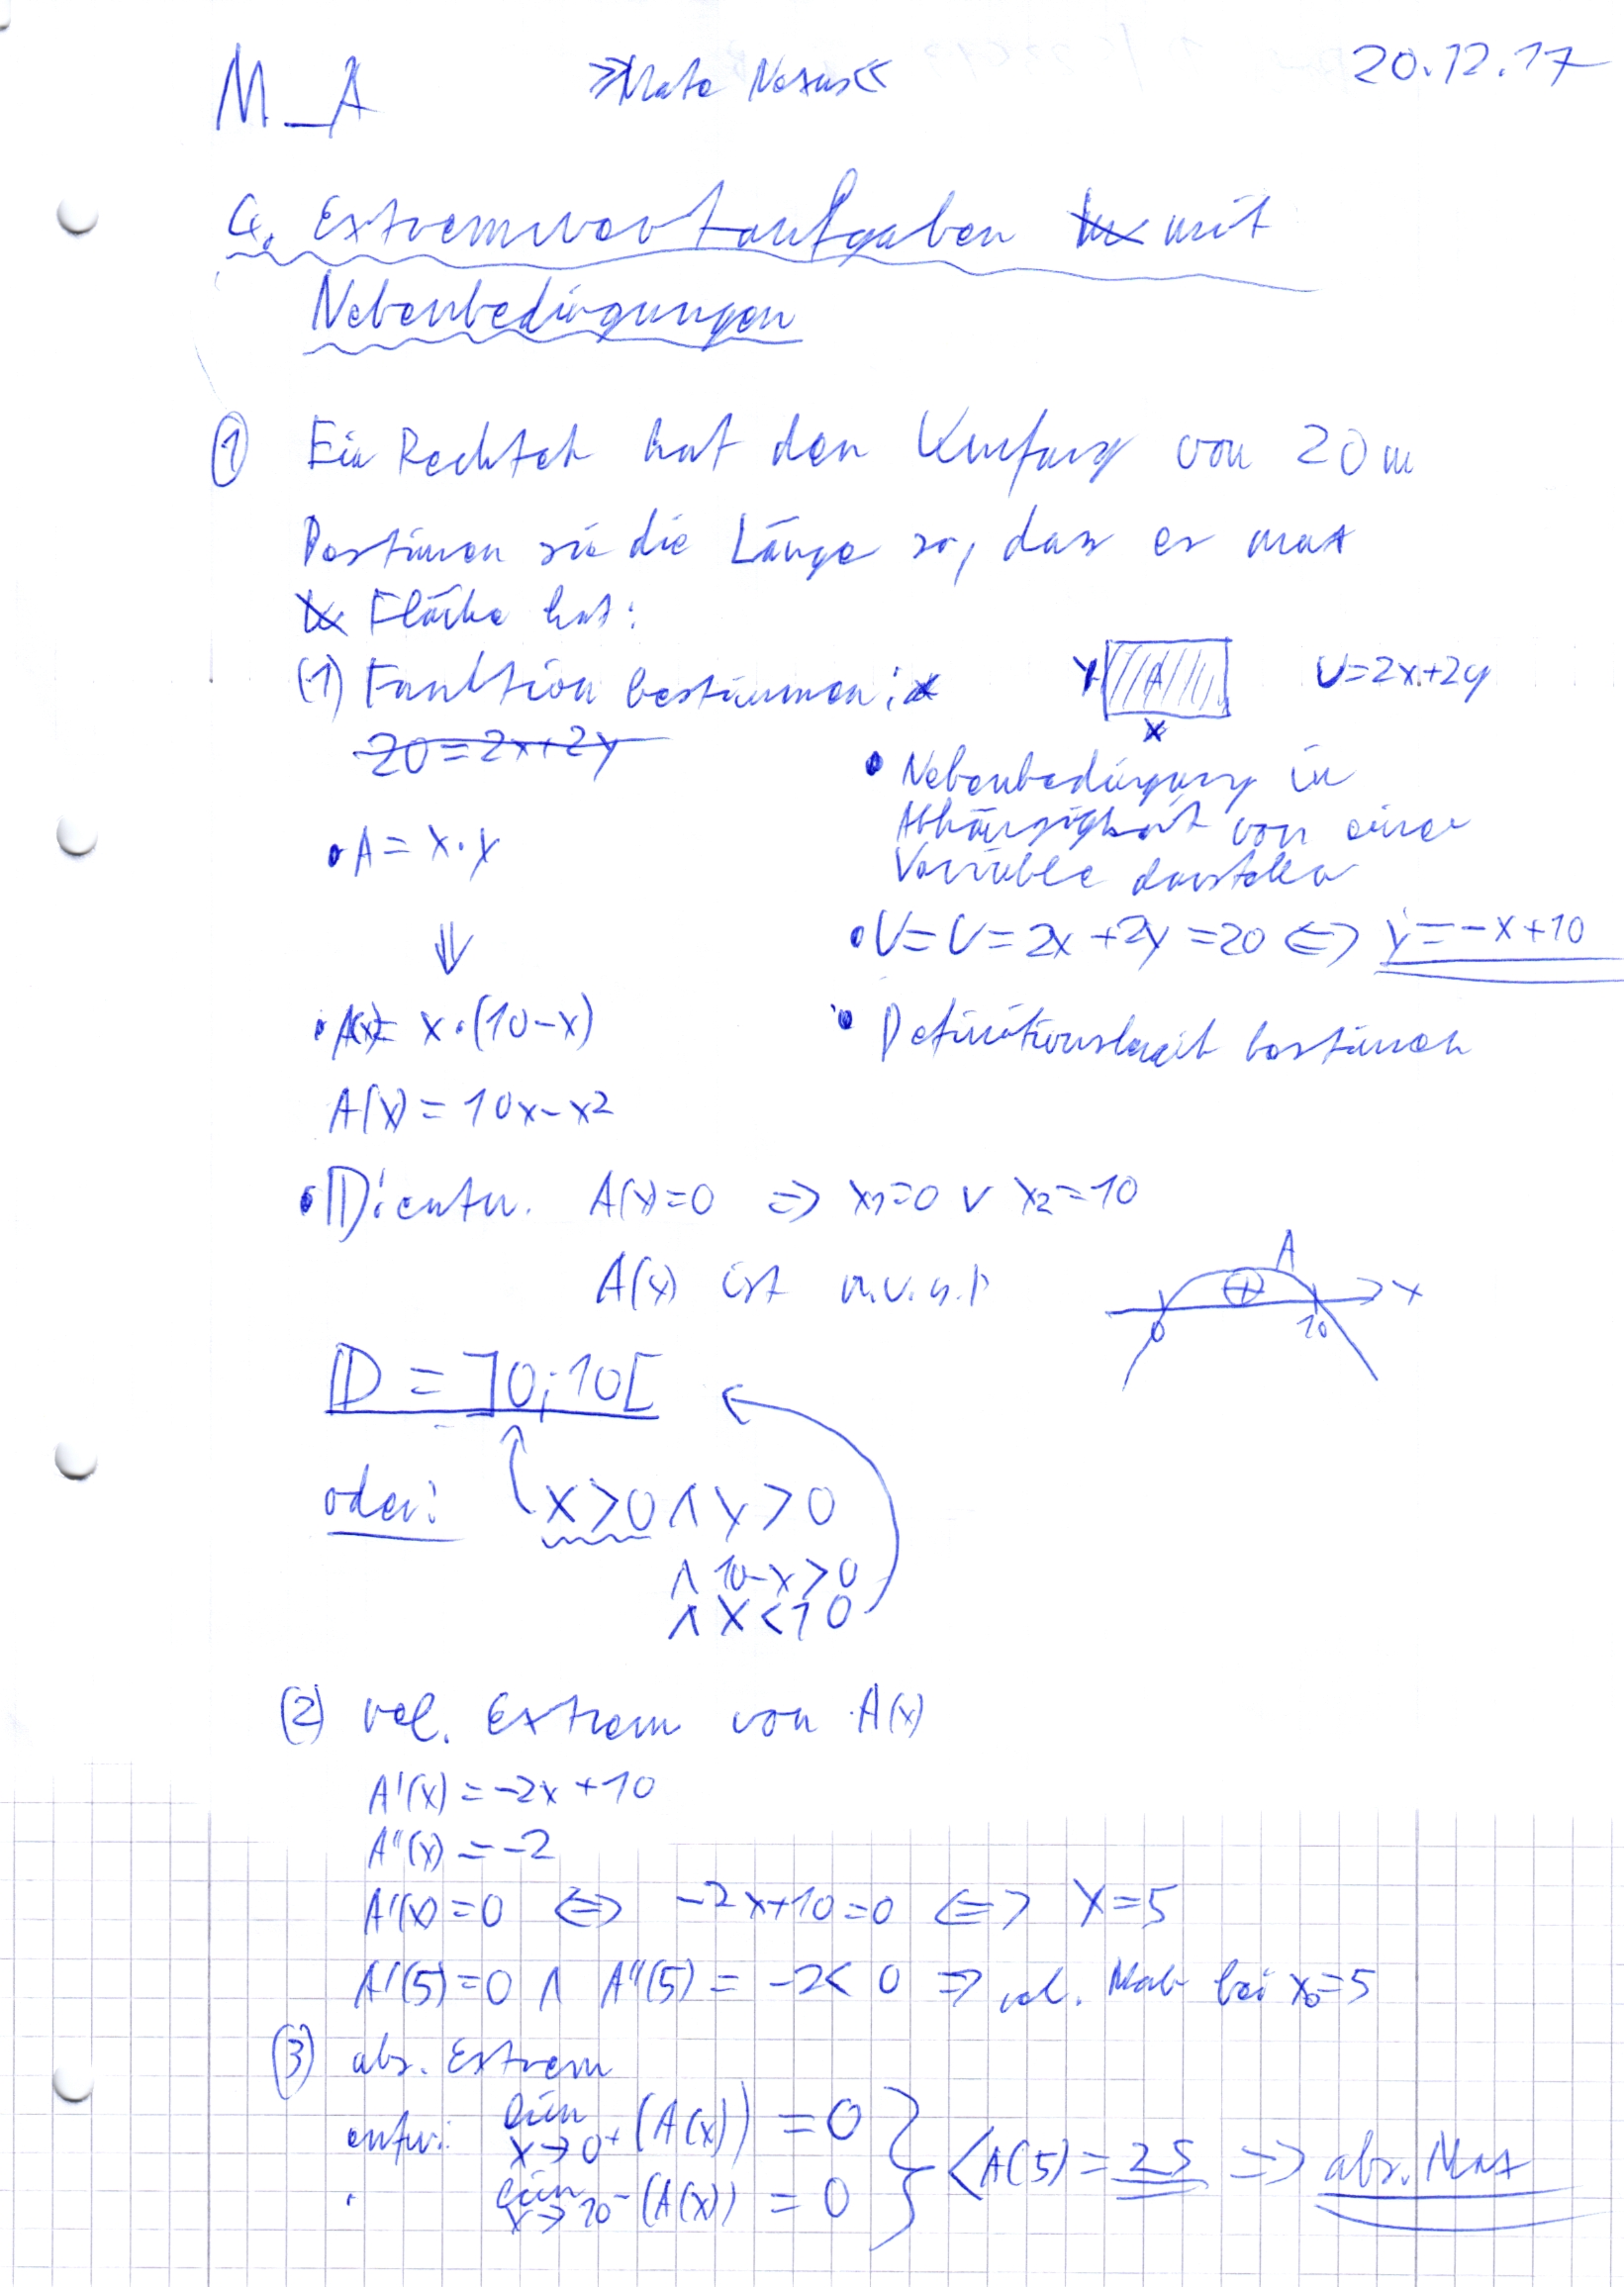 M_A
20.12.17
4. Extremwertaufgaben mit
Nebenbedingungen
① Ein Rechteck hat den Umfang von 20 m
Bestimmen sie die Länge so, dass es max
Fläche hat:
(1) Funktion bestimmen:
y A x U=2x+2y
20=2x+2y
• Nebenbedingung in
Abhängigkeit von einer
Variable darstellen
• A = x·y
⇓
• U=U=2x+2y=20 ⇔ y=-x+10
• A(x)= x·(10-x)
• Definitionsbereich bestimmen
A(x)=10x-x²
• D: entw. A(x)=0 ⇒ x₁=0 ∨ x₂=10
A(x) ist n.u.g.P
A ⊕ x 0 10
D = ]0;10[
oder: x>0 ∧ y>0
∧ 10-x>0
∧ x<10
(2) rel. Extrem von A(x)
A'(x)=-2x+10
A''(x)=-2
A'(x)=0 ⇔ -2x+10=0 ⇔ x=5
A'(5)=0 ∧ A''(5)=-2<0 ⇒ rel. Max bei x₀=5
(3) abs. Extrem
lim x→0⁺ (A(x)) = 0
lim x→10⁻ (A(x)) = 0 } < A(5)=25 ⇒ abs. Max